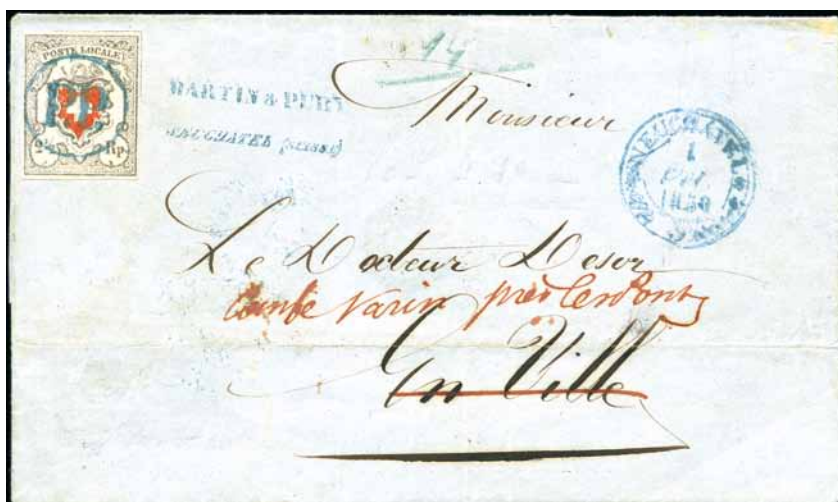 POSTE LOCALE
P.P.
2½ Rp.
14
MARTIN & PURY
NEUCHATEL (SUISSE)
Monsieur
NEUCHATEL
1
1850
Le Docteur Desor
Combe Varin près les Ponts
En Ville